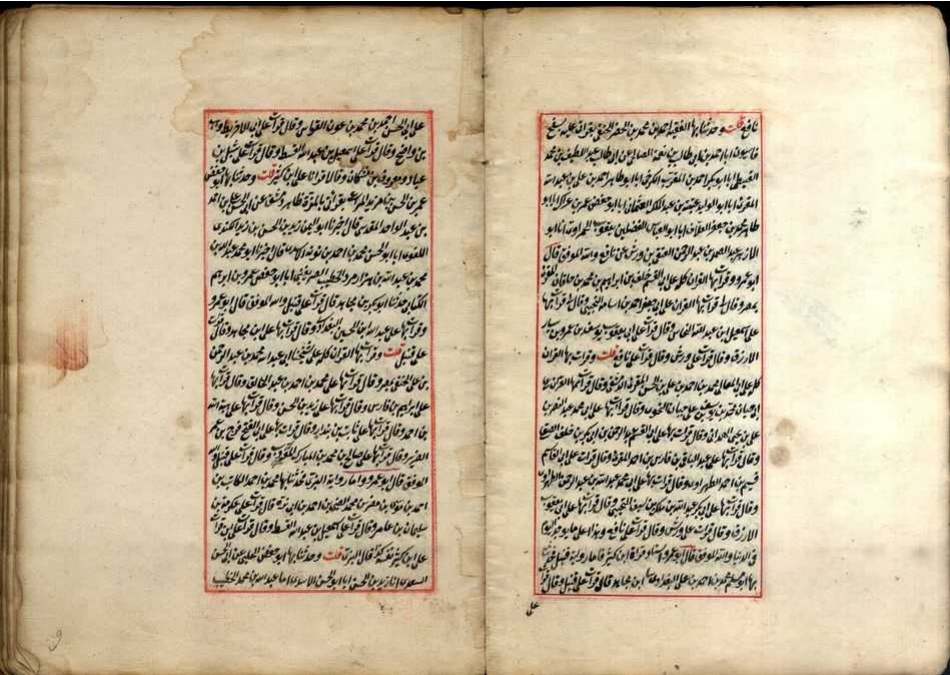 نافع قلت وحدثنا بها الفقيه احمد بن محمد بن الخضر الحنفى بقراتى عليه بسفح
قاسيون انا احمد بن ابى طالب بن نعمة الصالحى عن ابى طالب عبد اللطيف بن محمد
القبيطى انا ابو بكر احمد بن المقرب الكرخى انا ابو طاهر احمد بن على بن عبد الله
المقرى انا ابو الوليد عتبة بن عبد الملك العثمانى انا ابو حفص عمر بن عراك انا ابو
طاهر محمد بن جعفر العلاف انا ابو الفضل بن يعقوب الحمراوى انا ابو
الازهر عبد الصمد بن عبد الرحمن العتقى عن ورش عن نافع والله الموفق قال
ابو عمرو وقرات بها القران كله على ابى القسم خلف بن ابراهيم بن محمد بن خاقان المقرى
بمصر وقال لى قرات بها القران على ابى جعفر احمد بن اسامة التجيبى وقال لى قرات بها
على اسمعيل بن عبد الله النحاس وقال قرات على ابى يعقوب يوسف بن عمرو بن يسار
الازرق وقال قرات على ورش وقال قرات على نافع قلت وقرات بها القران
كله على ابى المعالى محمد بن احمد بن على بن الحسن المقرى الدمشقى وقال قرات بها القران على
ابى حيان محمد بن يوسف بن على بن حيان النحوى وقال قرات بها على ابى محمد عبد النصير بن
على بن يحيى الهمدانى وقال قرات بها على ابى القسم عبد الرحمن بن ابى بكر بن خلف الصقلى
وقال قرات بها على عبد الباقى بن فارس بن احمد المقرى وقال قرات على ابى القاسم
قسيم بن احمد الظهراوى وقال قرات بها على ابى محمد عبد الله بن عبد الرحمن الظهراوى
وقال قرات على ابى بكر عبد الله بن مالك بن سيف التجيبى وقال قرات بها على ابى يعقوب
الازرق وقال قرات على ورش وقال قرات على نافع وهذا اعلى ما يوجد اليوم
فى الدنيا والله الموفق قال ابو عمرو اسناد قراة ابن كثير فاما رواية قنبل فحدثنا
بها ابو مسلم محمد بن احمد بن على البغدادى ابن مجاهد قال قرات على قنبل وقال قرات
على
على ابى الحسن احمد بن محمد بن عون القواس وقال قرات على ابى الاخريط وهب
بن واضح وقال قرات على اسمعيل بن عبد الله القسط وقال قرات على شبل بن
عباد ومعروف بن مشكان وقالا قرانا على ابن كثير قلت وحدثنا بها ابو حفص
عمر بن الحسن بن مزيد المراغى بقراتى بالمزة ظاهر دمشق عن ابى الحسن على بن احمد
بن عبد الواحد المقدسى قال اخبرنا ابو اليمن زيد بن الحسن بن زيد الكندى
اللغوى انا ابو الحسن محمد بن احمد بن توبة الاسدى قال اخبرنا ابو محمد عبد الله بن
محمد بن عبد الله بن هزارمرد الخطيب الصريفينى انا ابو حفص عمر بن ابراهيم
الكتانى حدثنا ابو بكر بن مجاهد قال قرات على قنبل والله الموفق قال ابو عمرو
وقرات بها على عبد الله بن الحسين البغدادى وقال قرات بها على ابن مجاهد وقال قرات
على قنبل قلت وقرات بها القران كله على شيخنا ابى عبد الله محمد بن عبد الرحمن
بن على الحنفى بمصر وقال قرات بها على محمد بن احمد بن عبد الخالق وقال قرات بها
على ابراهيم بن فارس وقال قرات بها على زيد بن الحسن وقال قرات بها على هبة الله
بن احمد وقال قرات بها على ثابت بن بندار وقال قرات بها على ابى الفتح فرج بن عمر
الضرير وقال قرات بها على صالح بن محمد بن المبارك المؤدب وقال قرات على قنبل والله
الموفق قال ابو عمرو واما رواية البزى فحدثنا بها محمد بن احمد الكاتب بن
احمد بن موسى بن مضر بن محمد الضبى بن احمد بن ابى بزة وقال قرات على عكرمة بن
سليمان بن عامر وقال قرات على اسمعيل بن عبد الله القسط وقال قرات على
على ابن كثير نفسه كذا قال البزى قلت وحدثنا بها ابو حفص الحلبى عن ابى الحسن
السعدى انا زيد بن الحسن انا ابو الحسن الاسدى انا عبد الله بن محمد الخطيب
9